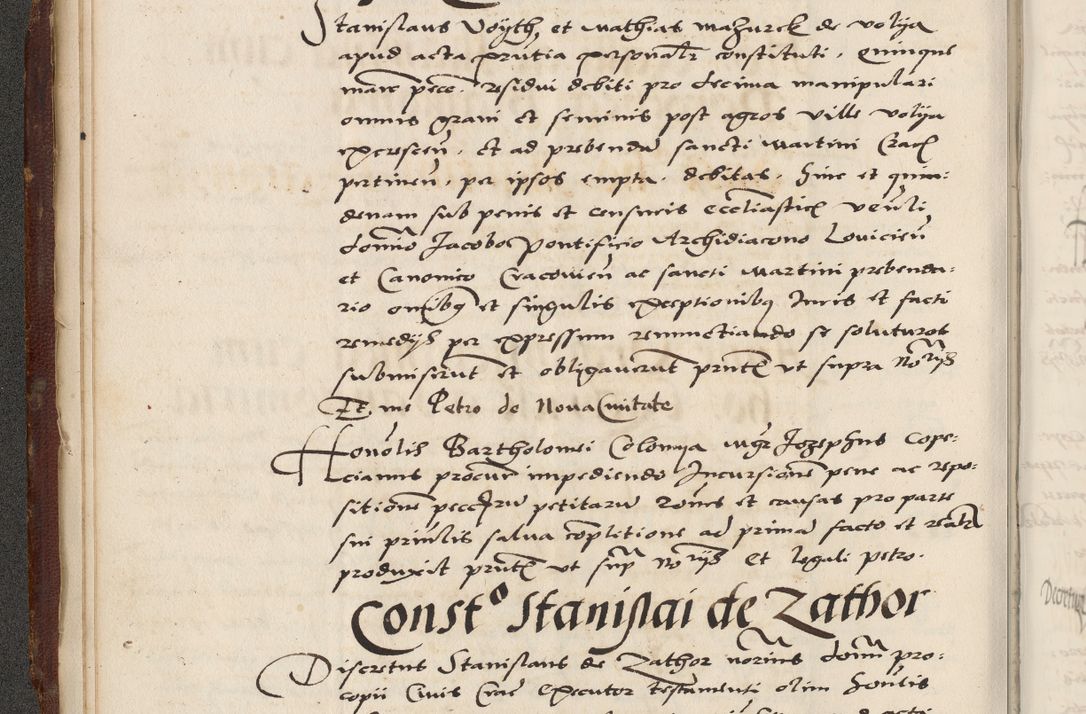 Stanislaus Voyth, et Mathias Mazurek de Volya
apud acta pñtia personalr constituti, quinque
marc pecc. residui debiti pro decima manipulari
omnis grani et seminis post agros ville Volya
excrescen, et ad prebendam sancti Martini Crac
pertinen, per ipsos empta, debitas, hinc et quin:
denam sub penis et censuris ecclīasticis venli
domino Jacobo Pontificio Archidiacono Lovicien
et Canonico Cracovien ac sancti Martini prebenda:
rio omibq et singulis exceptionibq Iuris et facti
remedijs per expressum renunctiando se soluturos
submiserūt et obligaverūt pñtib ut supra Norijs
Et me Petro de Nova Civitate
Honolis Bartholomei Colonya mgr Jozephus Cope:
cianus procur impediendo Incursione pene ac repo:
sitione petitaru rōnes et causas pro parte
sui prinlis salva complitione ad prima facto et
produxit pñtib ut sup Norijs et legali petro.
Constō Stanislai de Zathor
Discretus Stanislaus de Zathor norius pro:
copii Civis Crac executor testamenti olim honlis